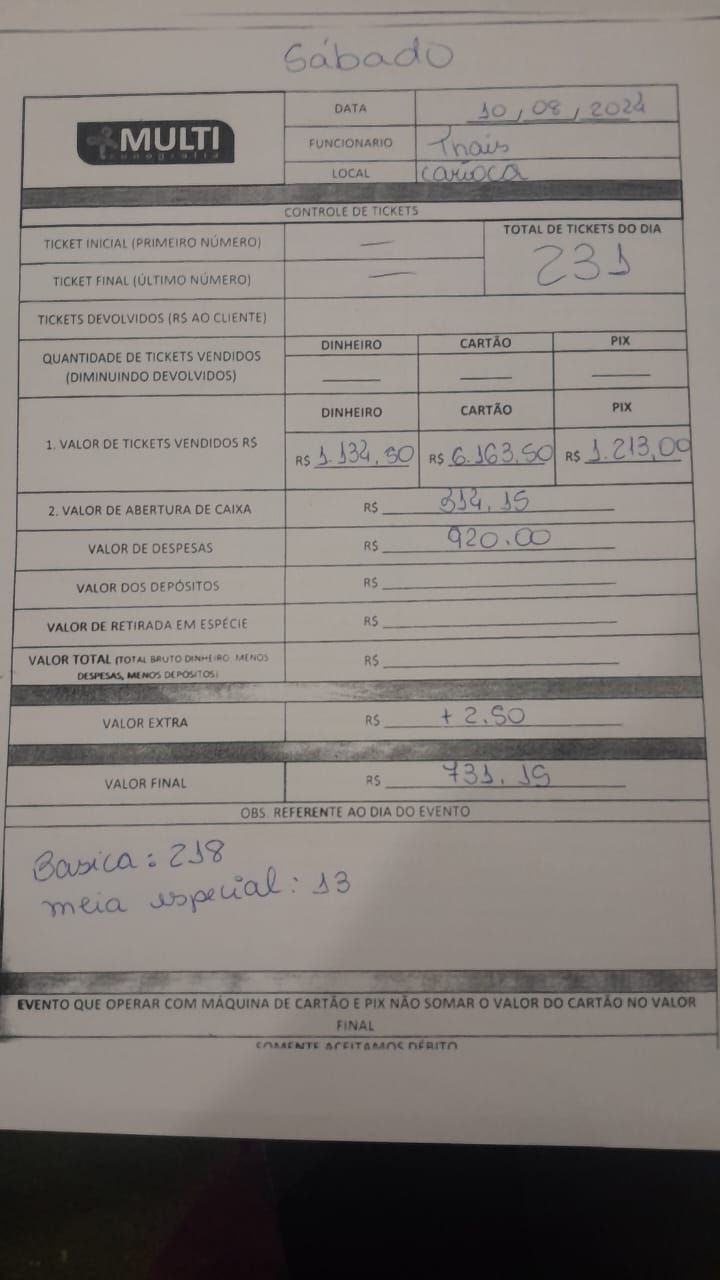 Sábado
MULTI
cenografia
DATA 10, 08, 2024
FUNCIONARIO Thais
LOCAL carioca
CONTROLE DE TICKETS
TICKET INICIAL (PRIMEIRO NÚMERO) —
TOTAL DE TICKETS DO DIA
231
TICKET FINAL (ÚLTIMO NÚMERO) —
TICKETS DEVOLVIDOS (R$ AO CLIENTE)
QUANTIDADE DE TICKETS VENDIDOS
(DIMINUINDO DEVOLVIDOS)
DINHEIRO CARTÃO PIX
— — —
DINHEIRO CARTÃO PIX
1. VALOR DE TICKETS VENDIDOS R$
R$ 1.134,50 R$ 6.163,50 R$ 1.213,00
2. VALOR DE ABERTURA DE CAIXA R$ 514.15
VALOR DE DESPESAS R$ 920.00
VALOR DOS DEPÓSITOS R$
VALOR DE RETIRADA EM ESPÉCIE R$
VALOR TOTAL (TOTAL BRUTO DINHEIRO MENOS
DESPESAS, MENOS DEPOSITOS) R$
VALOR EXTRA R$ + 2.50
VALOR FINAL R$ 731.15
OBS. REFERENTE AO DIA DO EVENTO
Basica: 218
meia especial: 13
EVENTO QUE OPERAR COM MÁQUINA DE CARTÃO E PIX NÃO SOMAR O VALOR DO CARTÃO NO VALOR
FINAL
SOMENTE ACEITAMOS DÉBITO